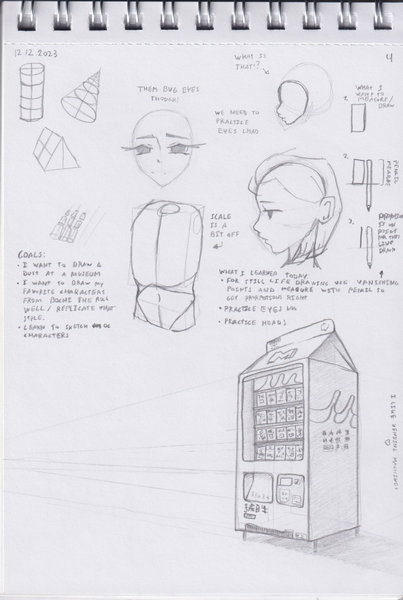 12.12.2023
4
WHAT IS
THAT!?
THEM BUG EYES
THOUGH!
WE NEED TO
PRACTICE
EYES LMAO
WHAT I
WANT TO
MEASURE/
DRAW
1.
2.
PENCIL
MEASURE
3.
SCALE
IS A
BIT OFF
GOALS:
• I WANT TO DRAW A
BUST AT A MUSEUM
• I WANT TO DRAW MY
FAVORITE CHARACTERS
FROM
WELL / REPLICATE THAT
STYLE.
• LEARN TO SKETCH
CHARACTERS
WHAT I LEARNED TODAY
• FOR STILL LIFE DRAWING USE VANISHING
POINTS AND MEASURE WITH PENCIL TO
GET PROPORTIONS RIGHT
• PRACTICE EYES
• PRACTICE HEADS
I LIKE VENDING MACHINES!